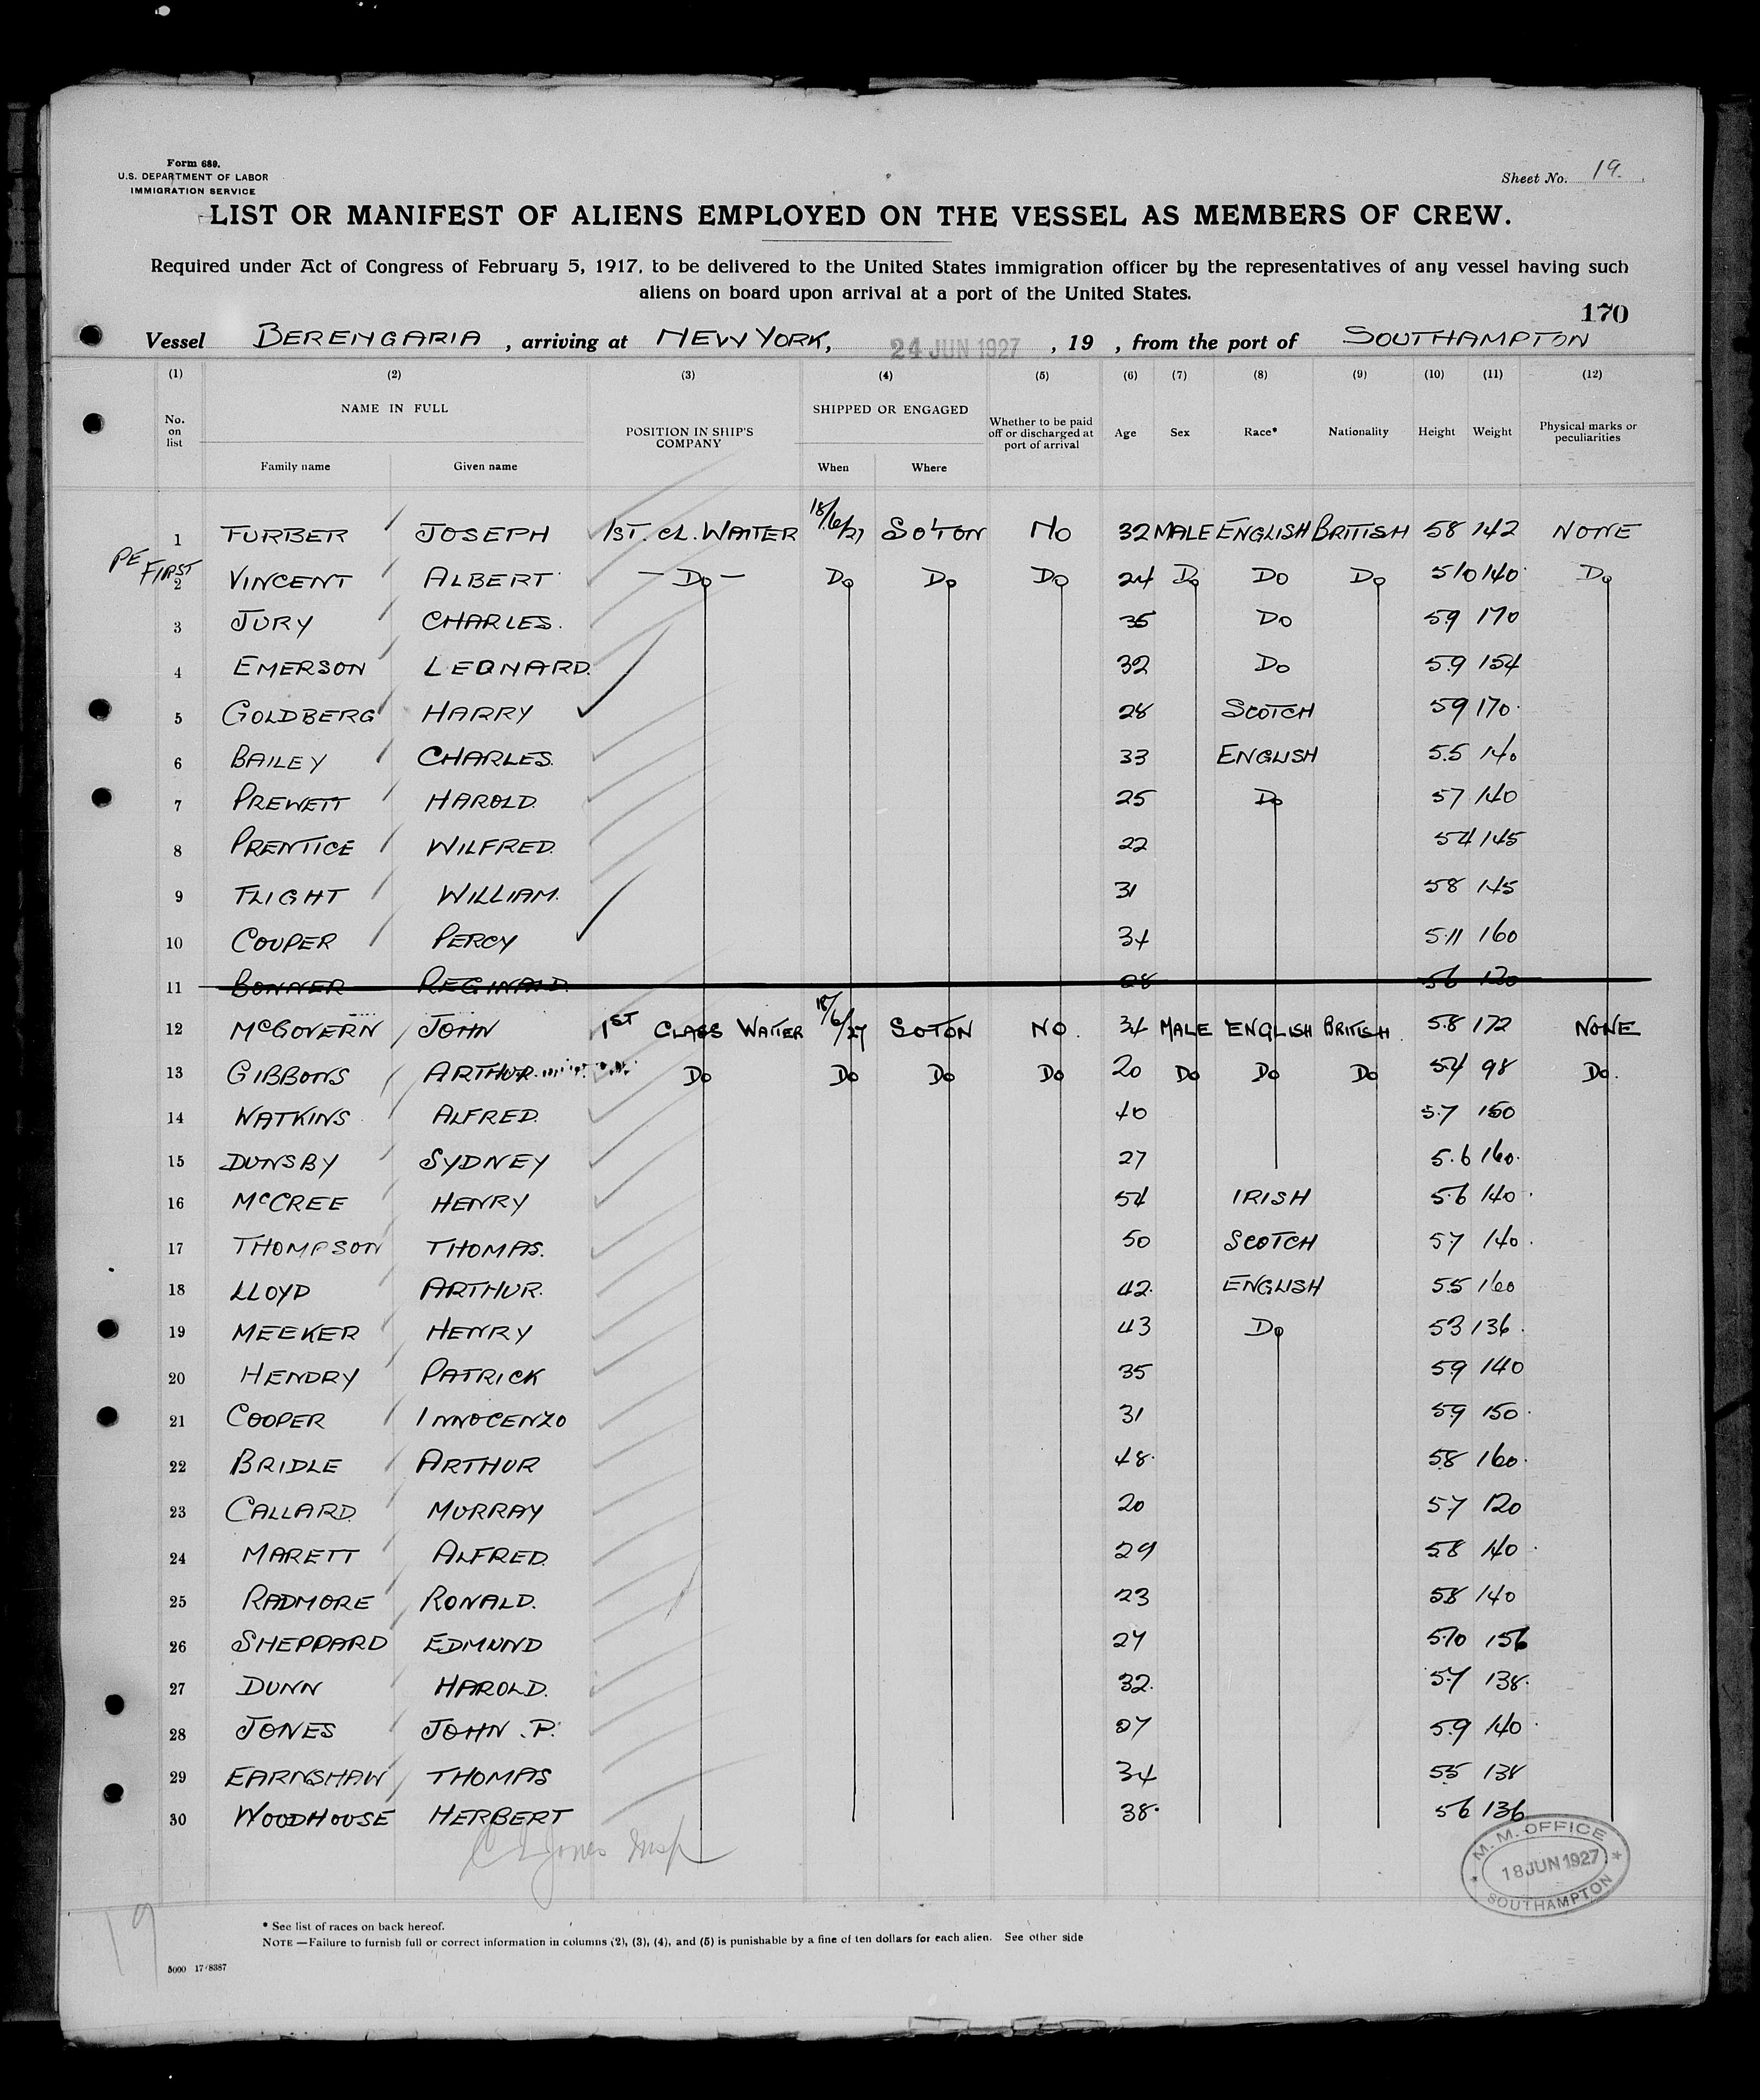 Form 689.
U.S. DEPARTMENT OF LABOR
IMMIGRATION SERVICE
Sheet No. 19.
LIST OR MANIFEST OF ALIENS EMPLOYED ON THE VESSEL AS MEMBERS OF CREW.
Required under Act of Congress of February 5, 1917, to be delivered to the United States immigration officer by the representatives of any vessel having such
aliens on board upon arrival at a port of the United States.
170
Vessel BERENGARIA , arriving at NEW YORK, 24 JUN 1927 , 19 , from the port of SOUTHAMPTON
(1) (2) (3) (4) (5) (6) (7) (8) (9) (10) (11) (12)
No. on list NAME IN FULL Family name Given name POSITION IN SHIP'S COMPANY SHIPPED OR ENGAGED When Where Whether to be paid off or discharged at port of arrival Age Sex Race* Nationality Height Weight Physical marks or peculiarities
1 FURBER JOSEPH 1ST. CL. WAITER 18/6/27 SO'TON NO 32 MALE ENGLISH BRITISH 58 142 NONE
PE FIRST
2 VINCENT ALBERT — DO — DO DO DO 24 DO DO DO 510 140 DO
3 JURY CHARLES. 35 DO 5.9 170
4 EMERSON LEONARD. 32 DO 5.9 154
5 GOLDBERG HARRY 28 SCOTCH 59 170
6 BAILEY CHARLES. 33 ENGLISH 5.5 140
7 PREWETT HAROLD. 25 DO 57 140
8 PRENTICE WILFRED. 22 54 145
9 FLIGHT WILLIAM. 31 58 145
10 COUPER PERCY 34 5.11 160
11 BONNER REGINALD. 28 56 120
12 McGOVERN JOHN 1ST CLASS WAITER 18/6/27 SOTON NO. 34 MALE ENGLISH BRITISH. 5.8 172 NONE
13 GIBBONS ARTHUR DO DO DO DO 20 DO DO DO 5.4 98 DO.
14 WATKINS ALFRED. 40 5.7 150
15 DUNSBY SYDNEY 27 5.6 160.
16 McCREE HENRY 54 IRISH 5.6 140
17 THOMPSON THOMAS. 50 SCOTCH 57 140
18 LLOYD ARTHUR. 42. ENGLISH 5.5 160
19 MEEKER HENRY 43 DO 53 136
20 HENDRY PATRICK 35 59 140
21 COOPER INNOCENZO 31 59 150
22 BRIDLE ARTHUR 48. 58 160.
23 CALLARD MURRAY 20 5.7 120
24 MARETT ALFRED. 29 58 140
25 RADMORE RONALD. 23 58 140
26 SHEPPARD EDMUND 27 5.10 156
27 DUNN HAROLD. 32. 5.7 138.
28 JONES JOHN . P. 27 5.9 140
29 EARNSHAW THOMAS 34 55 138
30 WOODHOUSE HERBERT 38. 56 136
Jones Insp
M. M. OFFICE
18 JUN 1927
SOUTHAMPTON
19
* See list of races on back hereof.
NOTE —Failure to furnish full or correct information in columns (2), (3), (4), and (5) is punishable by a fine of ten dollars for each alien. See other side
5000 17/8387